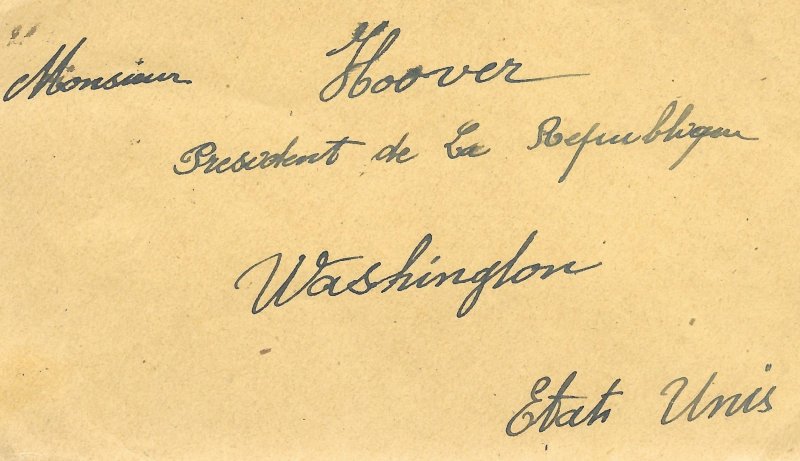 Monsieur Hoover
President de La Republique
Washington
Etats Unis